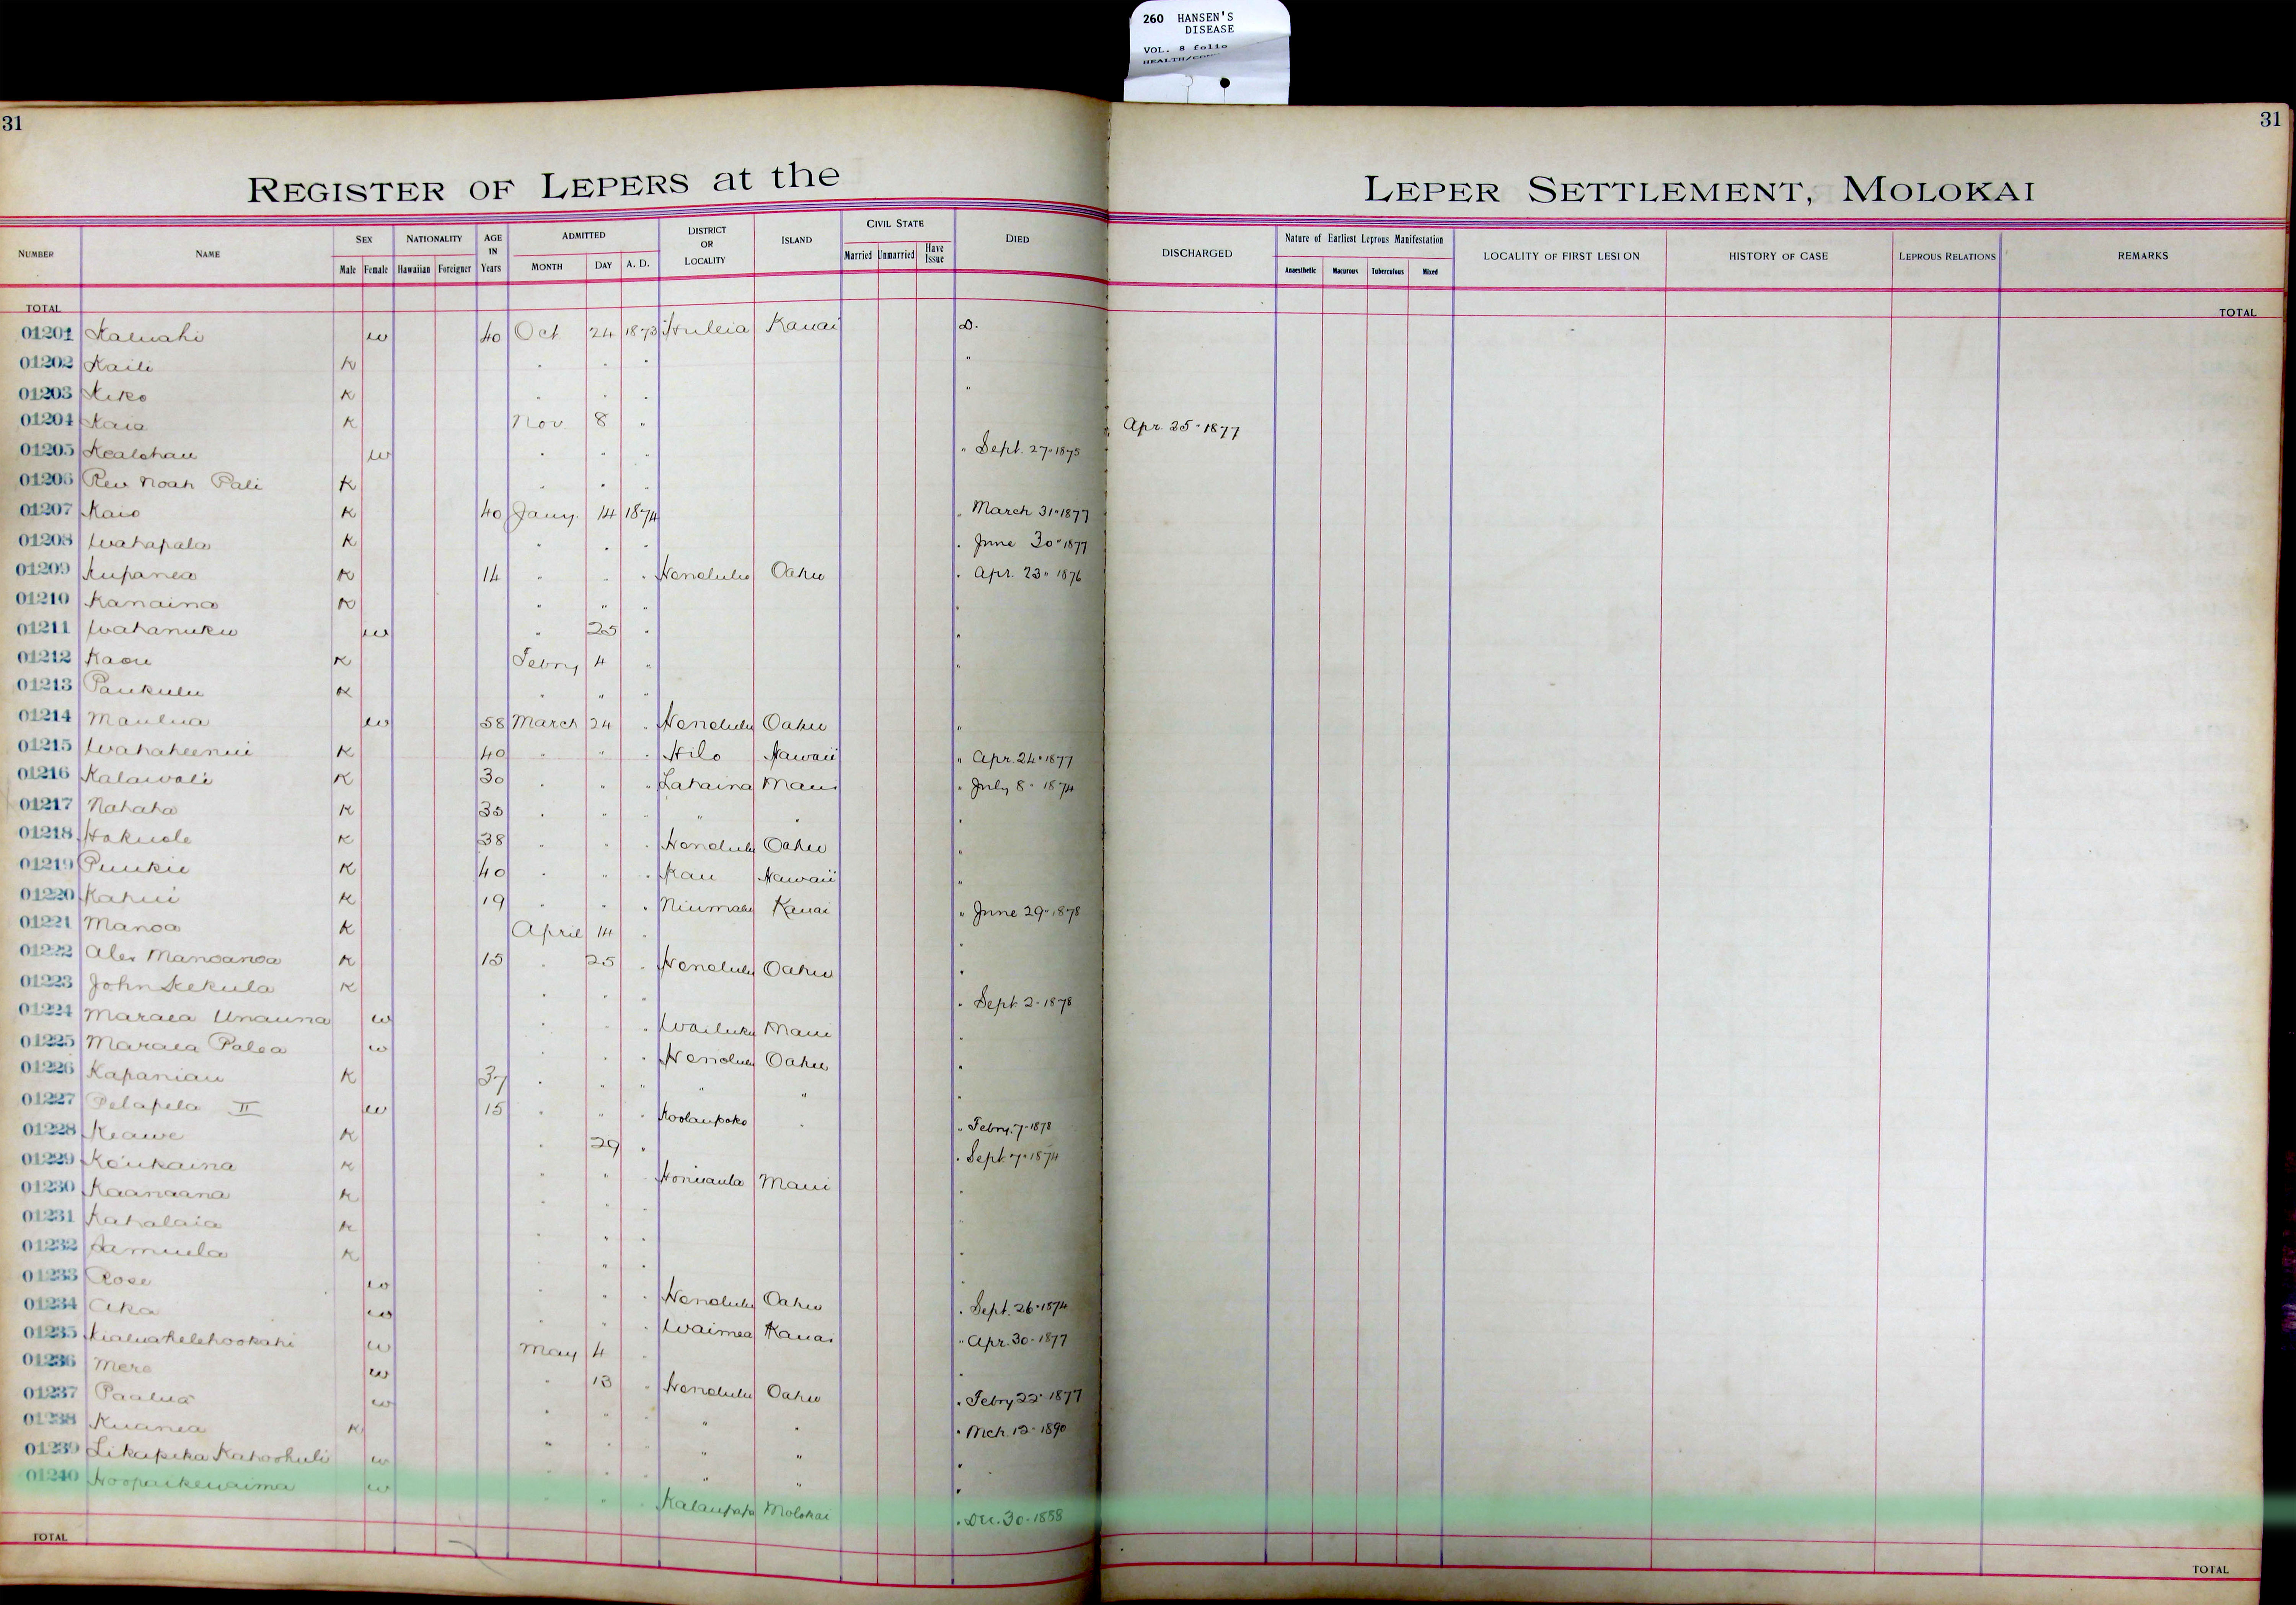 260 HANSEN'S
DISEASE
VOL. 8 folio
31
31
REGISTER OF LEPERS at the
LEPER SETTLEMENT, MOLOKAI
NUMBER NAME SEX Male Female NATIONALITY Hawaiian Foreigner AGE IN Years ADMITTED MONTH DAY A. D. DISTRICT OR LOCALITY ISLAND CIVIL STATE Married Unmarried Have Issue DIED
DISCHARGED Nature of Earliest Leprous Manifestation Anaesthetic Macurous Tuberculous Mixed LOCALITY OF FIRST LESION HISTORY OF CASE LEPROUS RELATIONS REMARKS
TOTAL TOTAL
01201 Kaluahi w 40 Oct 24 1873 Huleia Kauai D.
01202 Kaili K " " " "
01203 Keko K " " " "
01204 Kaia K Nov. 8 " Apr. 25" 1877
01205 Kealohau w " " " " Sept. 27" 1875
01206 Rev Noah Pali K " " "
01207 Kaio K 40 Jany. 14 1874 " March 31" 1877
01208 Wahapala K " " " " June 30" 1877
01209 Kupanea K 14 " " " Honolulu Oahu " Apr. 23" 1876
01210 Kanaina K " " " "
01211 Wahanuku w " 25 " "
01212 Kaou K Febry 4 " "
01213 Paukulu K " " "
01214 Maulua w 58 March 24 " Honolulu Oahu "
01215 Wahaheenui K 40 " " " Hilo Hawaii " Apr. 24" 1877
01216 Kalawali K 30 " " " Lahaina Maui " July 8" 1874
01217 Nahaha K 35 " " " " " "
01218 Hokuole K 38 " " " Honolulu Oahu "
01219 Puukie K 40 " " " Kau Hawaii "
01220 Kahui K 19 " " " Niumalu Kauai " June 29" 1878
01221 Manoa K April 14 " "
01222 Alex Manoanoa K 15 " 25 " Honolulu Oahu "
01223 John Kekula K " " " " Sept. 2" 1878
01224 Maraea Unauna w " " " Wailuku Maui "
01225 Maraea Palea w " " " Honolulu Oahu "
01226 Kapaniau K 37 " " " " " "
01227 Pelapela II w 15 " " " Koolaupoko " " Febry. 7" 1878
01228 Keawe K " 29 " " Sept. 7" 1874
01229 Keukaina K " " " Honuaula Maui "
01230 Kaanaana K " " "
01231 Kahalaia K " " " "
01232 Samuela K " " " "
01233 Rose w " " " Honolulu Oahu " Sept. 26" 1874
01234 Aka w " " " Waimea Kauai " Apr. 30" 1877
01235 Kialuahelehookahi w May 4 " "
01236 Mere w " 13 " Honolulu Oahu " Febry 22" 1877
01237 Paalua w " " " " " " Mch. 12" 1890
01238 Kuanea K " " " " " "
01239 Likapeka Kahoohuli w " " " " " "
01240 Hoopaikewaima w " " " Kalaupapa Molokai " Dec. 30" 1888
TOTAL TOTAL